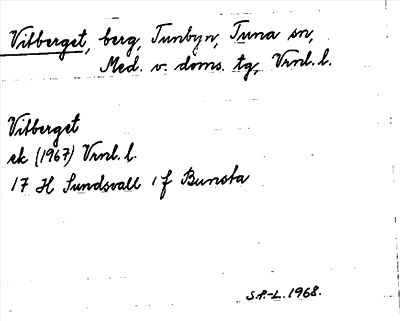 Vitberget, berg, Tunbyn, Tuna sn,
Med. v. doms. tg, Vrnl. l.
Vitberget
ek (1967) Vrnl. l.
17 H Sundsvall 1 f Bunsta
S.P.-L. 1968.